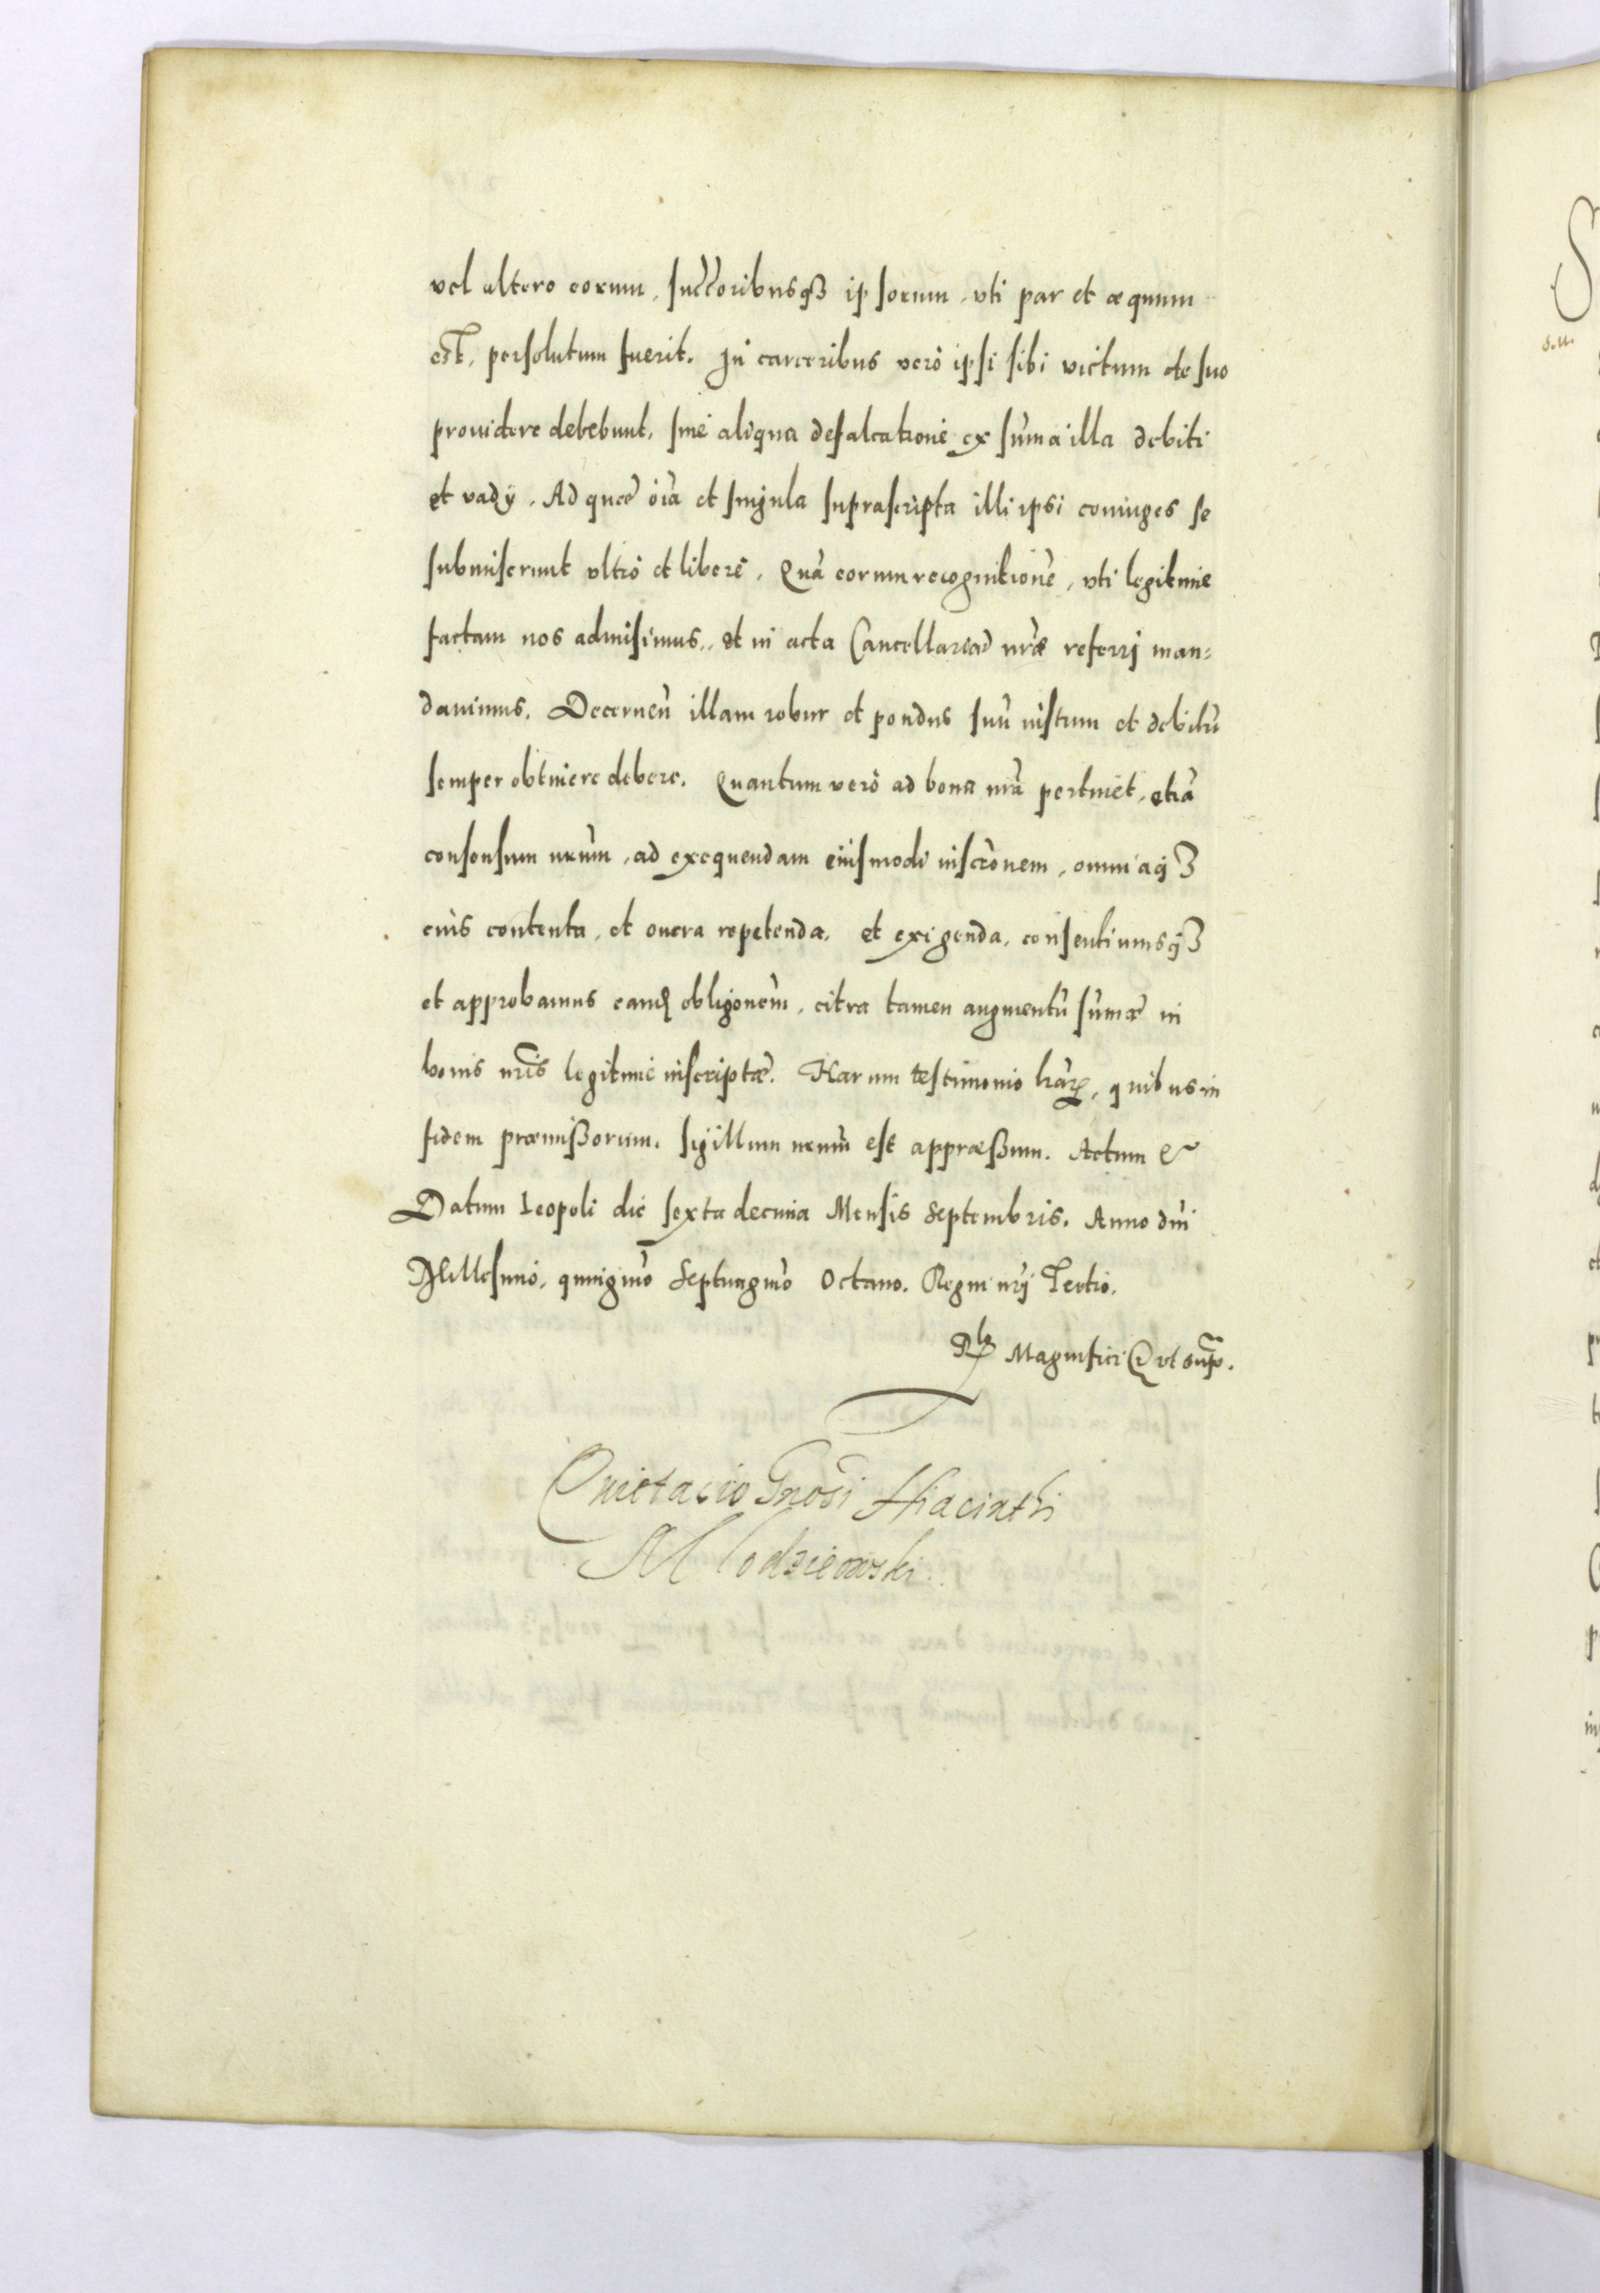 vel altero eorum, succ̃oribusqȝ ipsorum, vti par et æquum
est, persolutum fuerit. In carceribus verò ipsi sibi victum de suo
prouidere debebunt, sine aliqua defalcatione ex sum̃a illa debiti
et vadÿ. Ad quæ oĩa et singula suprascripta illi ipsi coniuges se
submiserunt vltrò et liberè. Quã eorum recognitionẽ, vti legitimè
factam nos admisimus, et in acta Cancellariæ nr̃æ referrj man=
dauimus. Decernen̄ illam robur et pondus suũ iustum et debitũ
semper obtinere debere. Quantum verò ad bona nrã pertinet, etiã
consensum nrũm, ad exequendam eiusmodi inscr̃onem, omniaqȝ
eius contenta, et onera repetenda, et exigenda, consentiumsqȝ
et approbamus eand̃ obligõnem, citra tamen augmentũ sum̃æ in
bonis nr̃is legitimè inscriptæ. Harum testimonio lr̃arꝝ, quibus in
fidem præmißorum, sigillum nrũm est appræßum. Actum &
Datum Leopoli die sexta decima Mensis Septembris. Anno dñi
Millesimo, quingm̃o Septuagm̃o Octauo. Regni nrj̃ Tertio.
Rlȝ Magnifici & vt supr̃.
Quietacio Gnõsi Hiacinthi
Mlodziewski